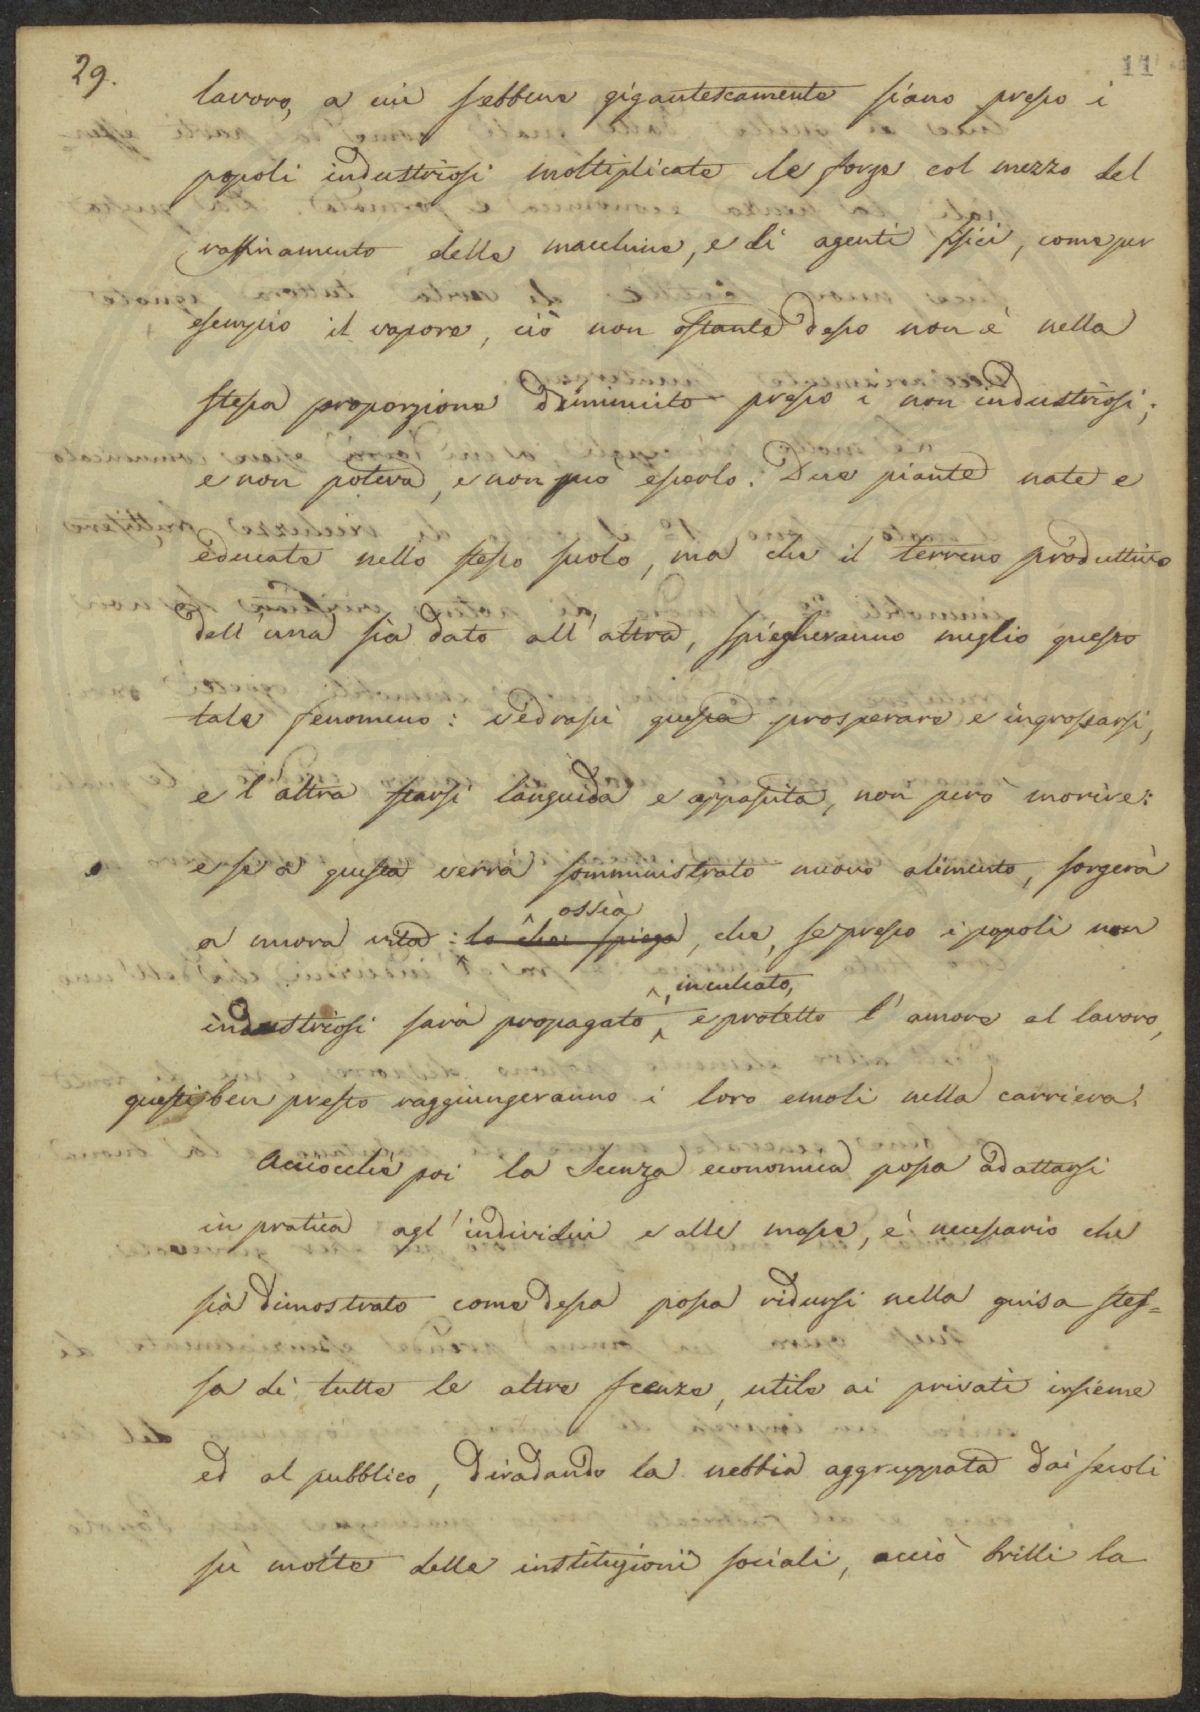 29.
11
lavoro, a cui sebbene gigantescamente siano presso i
popoli industriosi moltiplicate le forze col mezzo del
raffinamento delle macchine, e di agenti fisici, come per
esempio il vapore, ciò non ostante desso non è nella
stessa proporzione diminuito presso i non industriosi;
e non poteva, e non può esserlo. Due piante nate e
educate nello stesso suolo, ma che il terreno produttivo
dell'una sia dato all'altra, spiegheranno meglio questo
tale fenomeno: vedrassi questa prosperare e ingrossarsi,
e l'altra starsi languida e appassita, non però morire:
e se a questa verrà somministrato nuovo alimento, sorgerà
ossia
a nuova vita: lo che spiega, che, se presso i popoli non
inculcato,
industriosi sarà propagato, e protetto l'amore al lavoro,
questi ben presto raggiungeranno i loro emoli nella carriera.
Acciocchè poi la Scienza economica possa adattarsi
in pratica agl'individui e alle masse, è necessario che
sia dimostrato come dessa possa ridursi nella guisa stes=
sa di tutte le altre scienze, utile ai privati insieme
ed al pubblico, diradando la nebbia aggruppata dai secoli
su molte delle instituzioni sociali, acciò brilli la